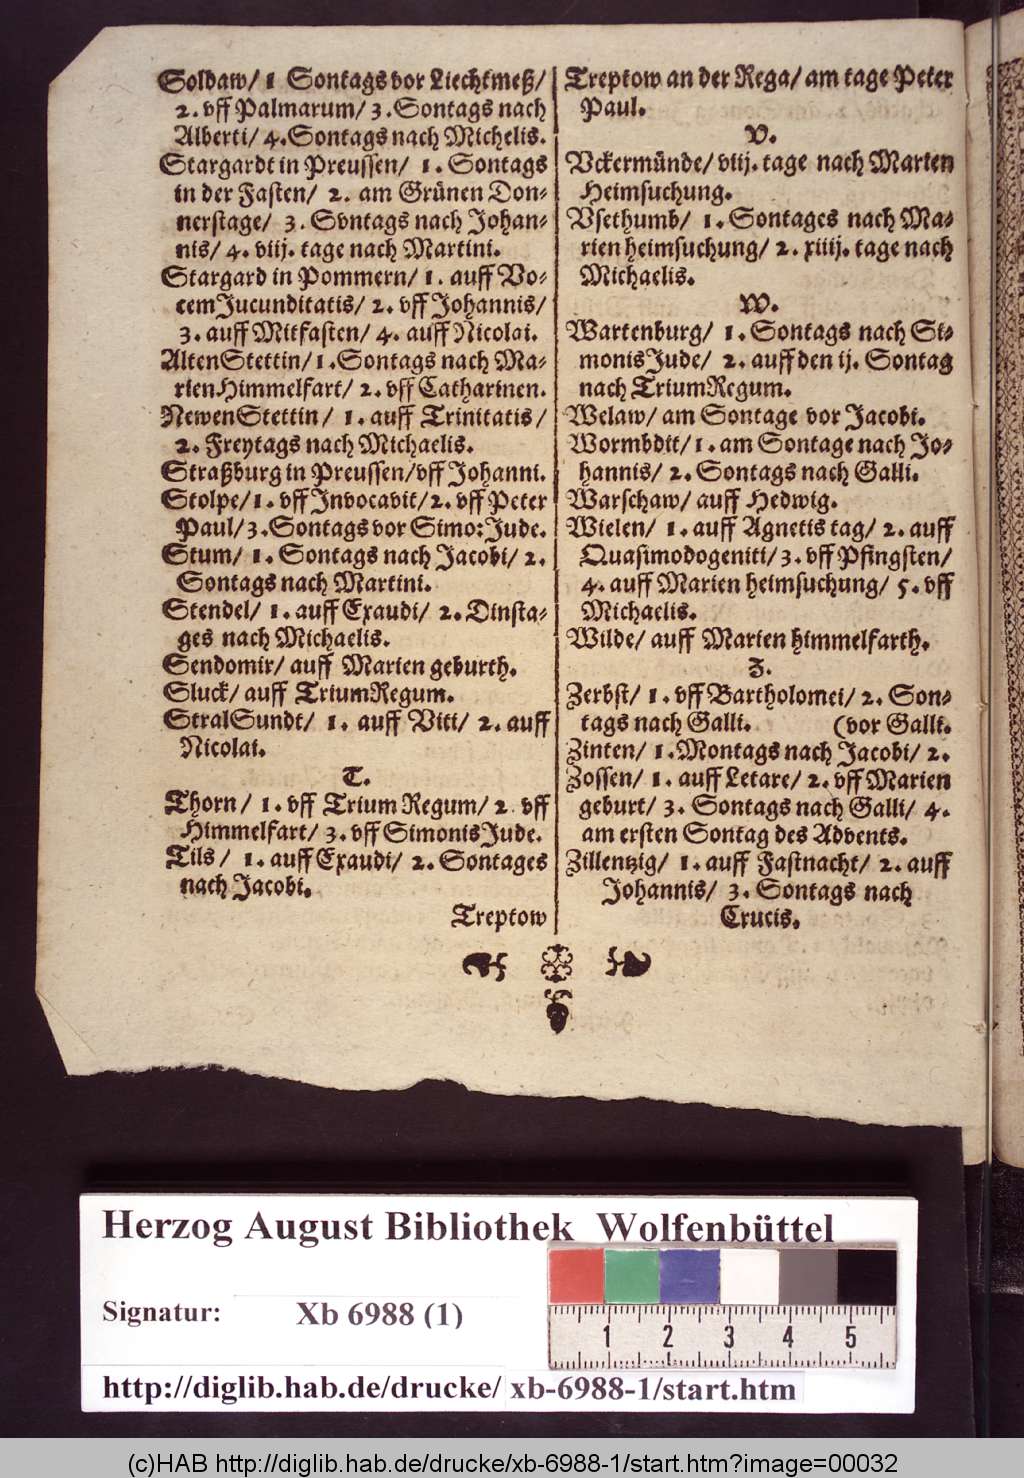 Soldaw/ 1 Sontags vor Liechtmeß/
2. vff Palmarum/ 3. Sontags nach
Alberti/ 4. Sontags nach Michelis.
Stargardt in Preussen/ 1. Sontags
in der Fasten/ 2. am Grünen Don-
nerstage/ 3. Svntags nach Johan-
nis/ 4. viij. tage nach Martini.
Stargard in Pommern/ 1. auff Vo-
cem Jucunditatis/ 2. vff Johannis/
3. auff Mitfasten/ 4. auff Nicolai.
Alten Stettin/ 1. Sontags nach Ma-
rien Himmelfart/ 2. vff Catharinen.
Newen Stettin/ 1. auff Trinitatis/
2. Freytags nach Michaelis.
Straßburg in Preussen/ vff Johanni.
Stolpe/ 1. vff Invocavit/ 2. vff Peter
Paul/ 3. Sontags vor Simo: Jude.
Stum/ 1. Sontags nach Jacobi/ 2.
Sontags nach Martini.
Stendel/ 1. auff Exaudi/ 2. Dinsta-
ges nach Michaelis.
Sendomir/ auff Marien geburth.
Sluck/ auff Trium Regum.
Stral Sundt/ 1. auff Viti/ 2. auff
Nicolai.
T.
Thorn/ 1. vff Trium Regum/ 2 vff
Himmelfart/ 3. vff Simonis Jude.
Tils/ 1. auff Exaudi/ 2. Sontages
nach Jacobi.
Treptow
Treptow an der Rega/ am tage Peter
Paul.
V.
Vckermünde/ viij. tage nach Marien
Heimsuchung.
Vsethumb/ 1. Sontages nach Ma-
rien heimsuchung/ 2. xiiij. tage nach
Michaelis.
W.
Wartenburg/ 1. Sontags nach Si-
monis Jude/ 2. auff den ij. Sontag
nach Trium Regum.
Welaw/ am Sontage vor Jacobi.
Wormbdit/ 1. am Sontage nach Jo-
hannis/ 2. Sontags nach Galli.
Warschaw/ auff Hedwig.
Wielen/ 1. auff Agnetis tag/ 2. auff
Quasimodogeniti/ 3. vff Pfingsten/
4. auff Marien heimsuchung/ 5. vff
Michaelis.
Wilde/ auff Marien himmelfarth.
Z.
Zerbst/ 1. vff Bartholomei/ 2. Son-
tags nach Galli. (vor Galli.
Zinten/ 1. Montags nach Jacobi/ 2.
Zossen/ 1. auff Letare/ 2. vff Marien
geburt/ 3. Sontags nach Galli/ 4.
am ersten Sontag des Advents.
Zillentzig/ 1. auff Fastnacht/ 2. auff
Johannis/ 3. Sontags nach
Crucis.
Herzog August Bibliothek Wolfenbüttel
Signatur: Xb 6988 (1)
1 2 3 4 5
http://diglib.hab.de/drucke/ xb-6988-1/start.htm
(c)HAB http://diglib.hab.de/drucke/xb-6988-1/start.htm?image=00032